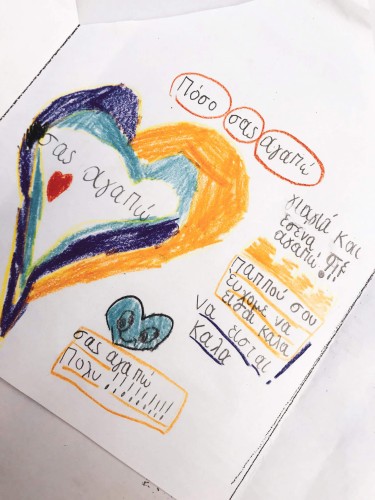 Πόσο σας αγαπώ
σας αγαπώ
γιαγιά και
εσένα
αγαπώ!!!
παππού σου
εύχομε να
είσαι καλα
να έσται
καλα
σας αγαπώ
Πολυ !!!!!!!!!